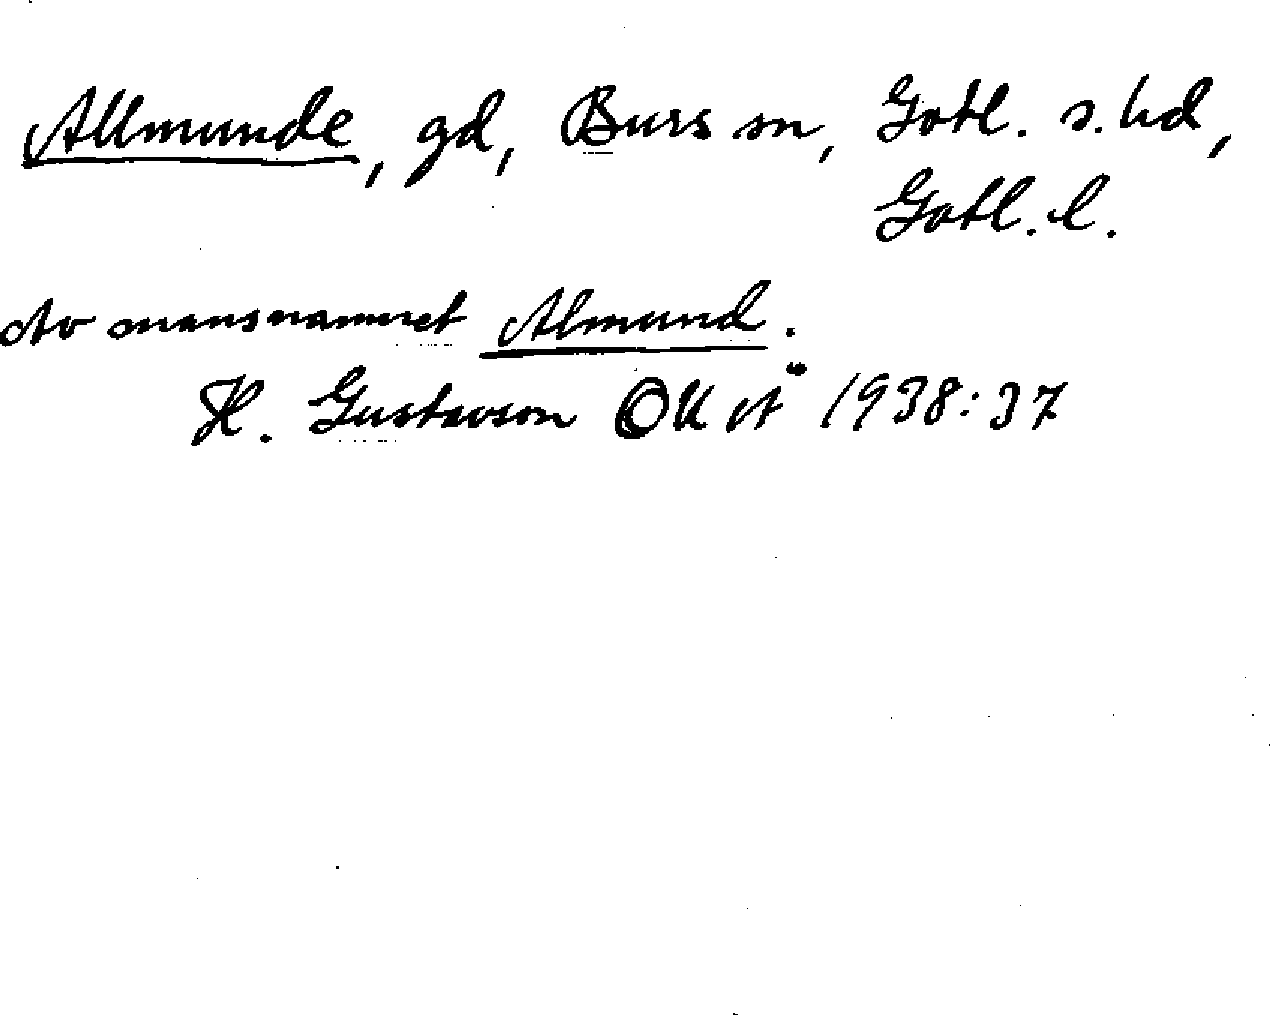 Allmunde, gd, Burs sn, Gotl. s. hd,
Gotl. l.
Av mansnamnet Almund.
H. Gustavson OUÅ 1938:37